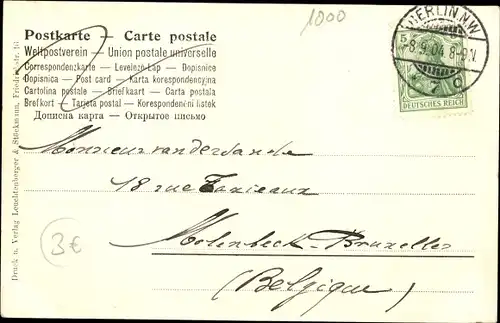 1000
Postkarte — Carte postale
Weltpostverein — Union postale universelle
Correspondenzkarte — Levelező-Lap — Dopisnice
Dopisnica — Post card — Karta korespondencyjna
Cartolina postale — Briefkaart — Carta postala
Brefkort — Tarjeta postal — Korespondenčni listek
Дописна карта — Открытое письмо
BERLIN.N.W.
5
-8.9.04. 8-9.V.
* 7 c
DEUTSCHES REICH
Monsieur van der Sande
18 rue
Molenbeck-Bruxelles
(Belgique)
3€
Druck u. Verlag Leuchtenberger & Stöckmann, Friedrichstr. 16